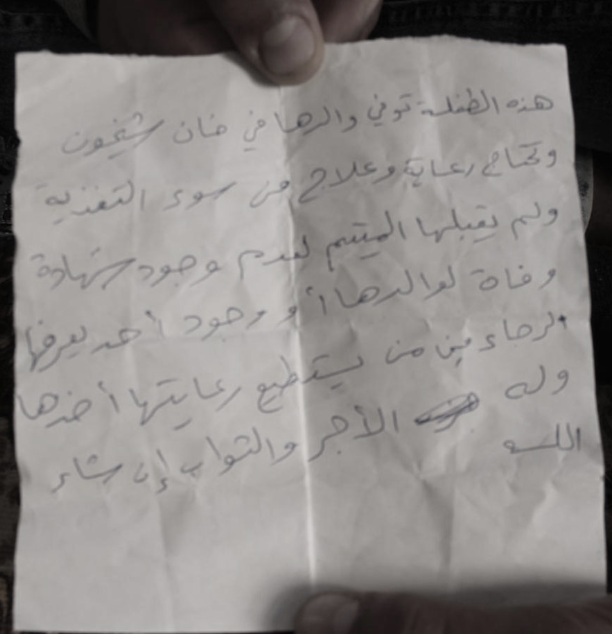 هذه الطفلة توفي والدها في خان شيخون
وتحتاج رعاية وعلاج من سوء التغذية
ولم يقبلها الميتم لعدم وجود شهادة
وفاة لوالدها أو وجود أحد يعرفها
الرجاء من من يستطيع رعايتها أخذها
وله الأجر والثواب إن شاء
الله